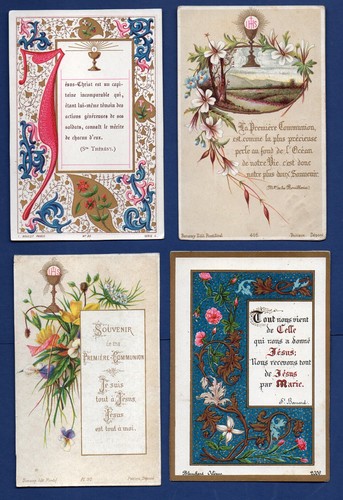 Jésus-Christ est un capi-
taine incomparable qui,
étant lui-même témoin des
actions généreuses de ses
soldats, connaît le mérite
de chacun d'eux.
(Ste Thérèse).
IHS
La Première Communion,
est comme la plus précieuse
perle au fond de l'Océan
de notre Vie: c'est donc
notre plus doux Souvenir
IHS
Souvenir
de ma
Première Communion
Je suis
tout à Jésus,
Jésus
est tout à moi.
Tout nous vient
de Celle
qui nous a donné
Jésus;
Nous recevons tout
de Jésus
par Marie.
St Bernard.